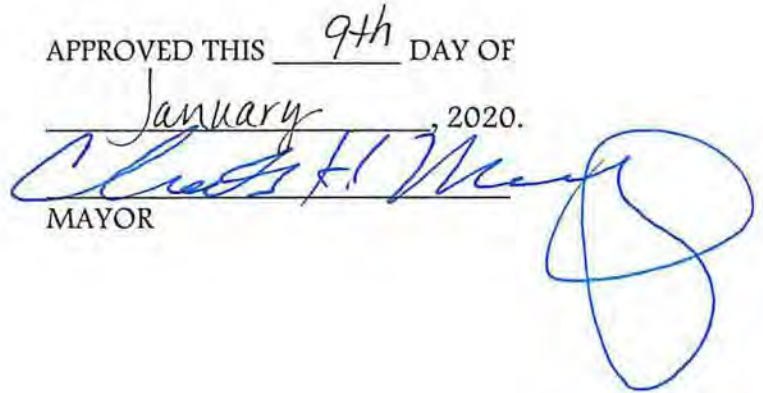 APPROVED THIS 9th DAY OF
January, 2020.
H
MAYOR